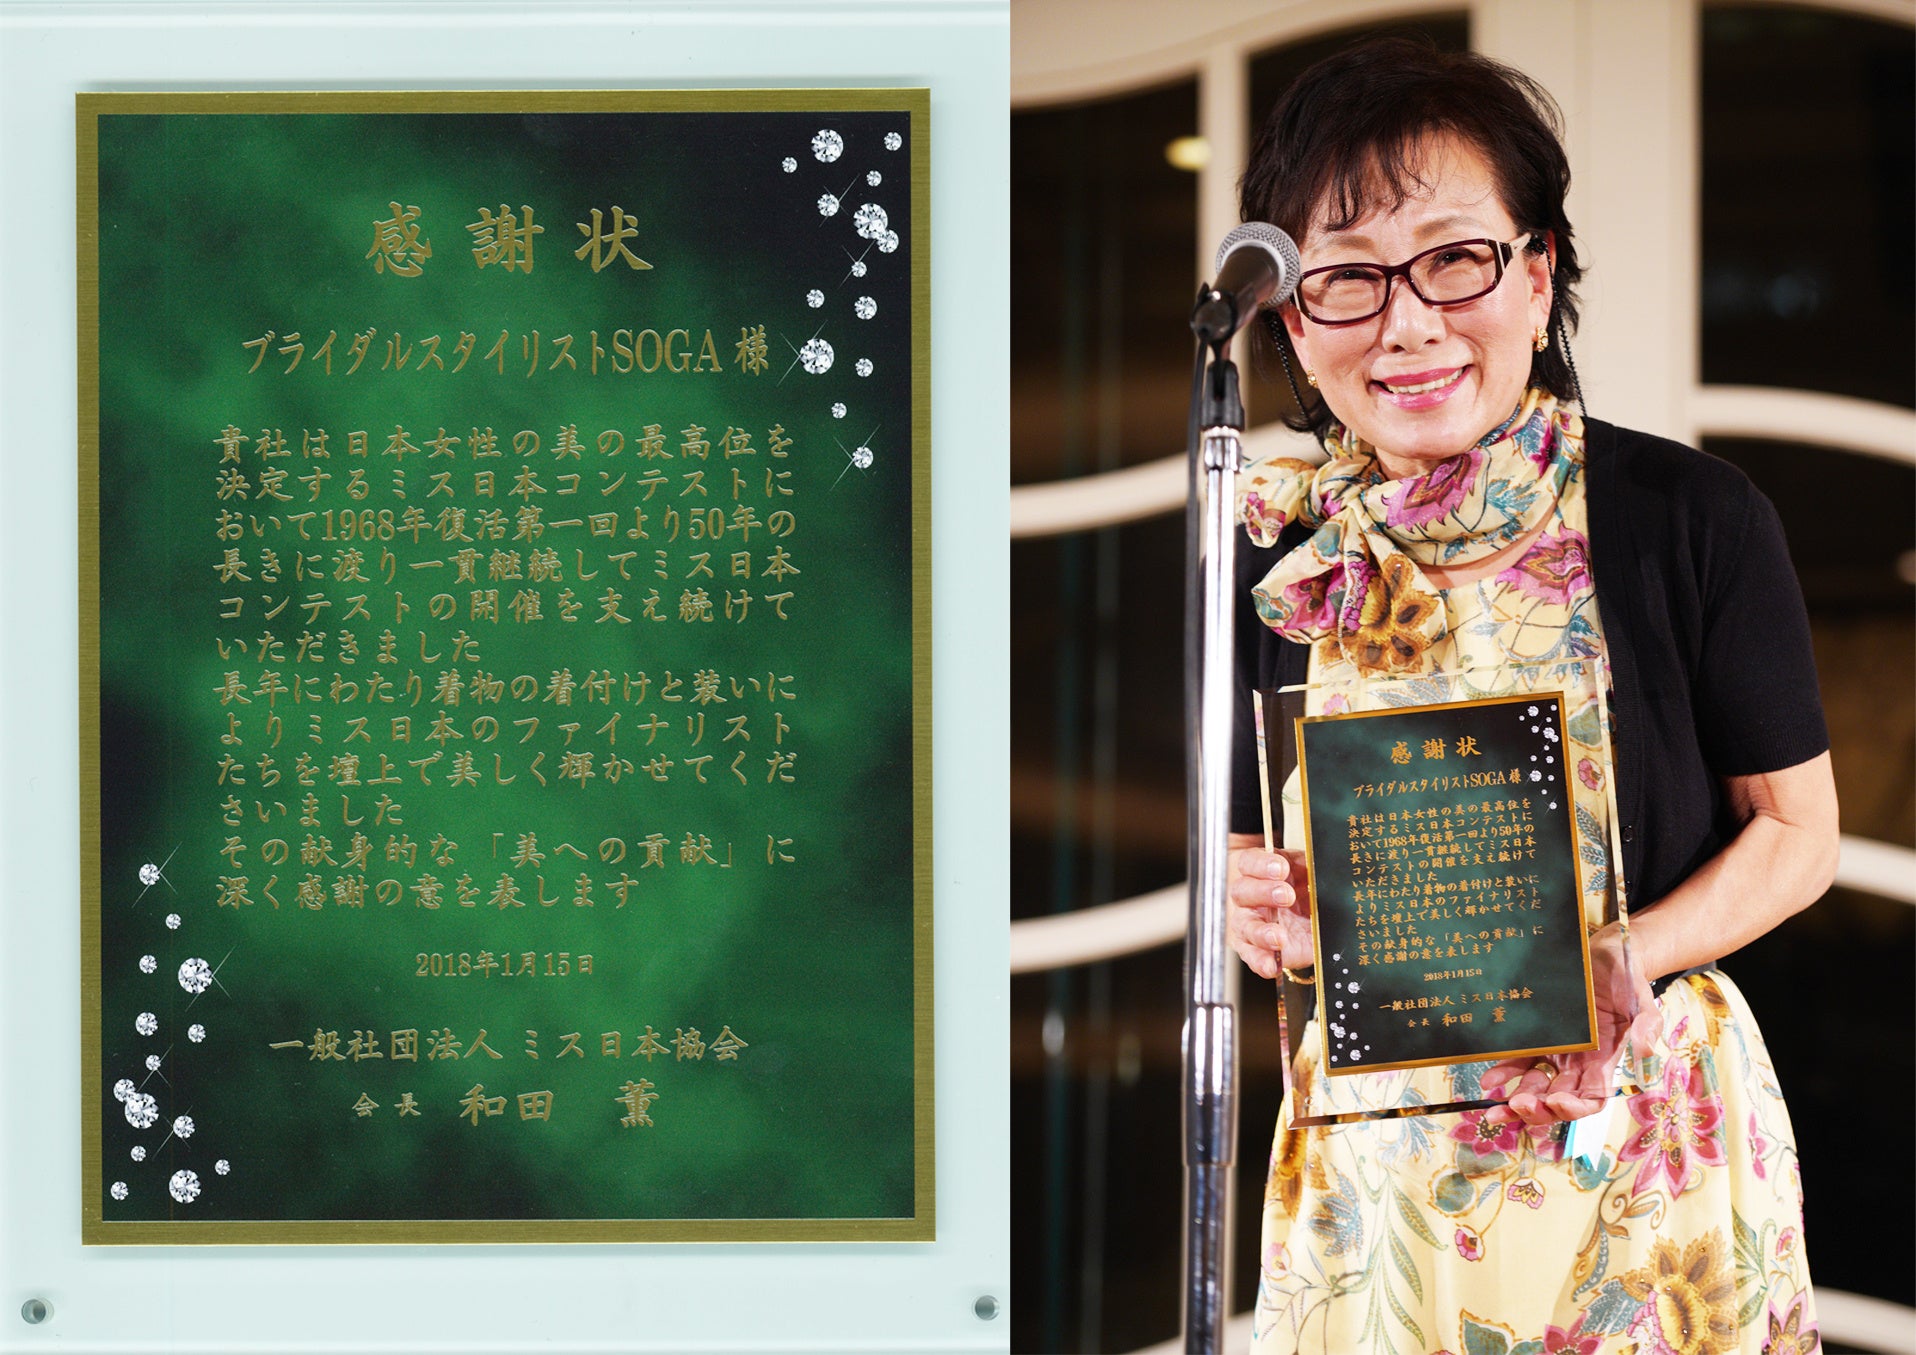 感謝状
ブライダルスタイリストSOGA 様
貴社は日本女性の美の最高位を
決定するミス日本コンテストに
おいて1968年復活第一回より50年の
長きに渡り一貫継続してミス日本
コンテストの開催を支え続けて
いただきました
長年にわたり着物の着付けと装いに
よりミス日本のファイナリスト
たちを壇上で美しく輝かせてくだ
さいました
その献身的な「美への貢献」に
深く感謝の意を表します
2018年1月15日
一般社団法人 ミス日本協会
会長 和田 薫
感謝状
ブライダルスタイリストSOGA 様
貴社は日本女性の美の最高位を
決定するミス日本コンテストに
おいて1968年復活第一回より50年の
長きに渡り一貫継続してミス日本
コンテストの開催を支え続けて
いただきました
長年にわたり着物の着付けと装いに
よりミス日本のファイナリスト
たちを壇上で美しく輝かせてくだ
さいました
その献身的な「美への貢献」に
深く感謝の意を表します
2018年1月15日
一般社団法人 ミス日本協会
会長 和田 薫